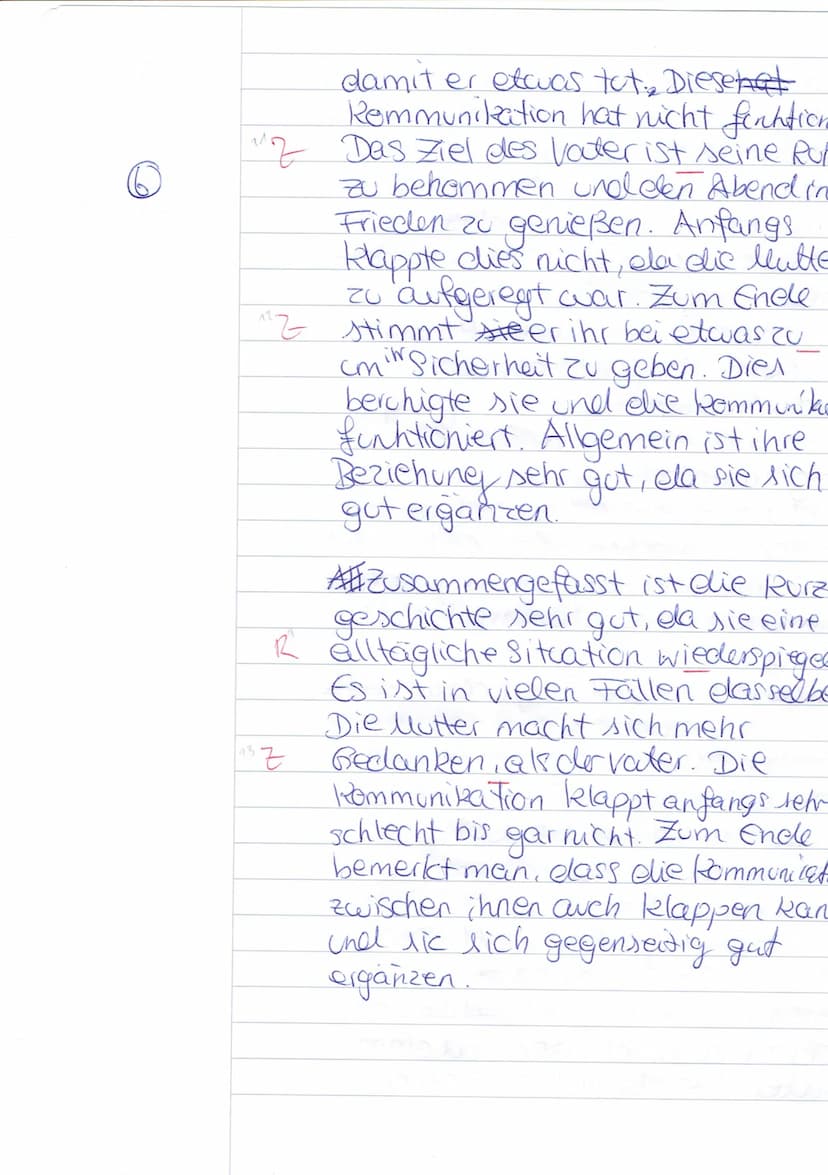 damit er etwas tut. Diese hat
Kommunikation hat nicht funktion
11 Z Das Ziel des Vater ist seine Ru
6 zu bekommen und den Abend in
Frieden zu genießen. Anfangs
klappte dies nicht, da die Mutte
zu aufgeregt war. Zum Ende
12 Z stimmt sie er ihr bei etwas zu
um ihr Sicherheit zu geben. Dies
beruhigte sie und die Kommunika
funktioniert. Allgemein ist ihre
Beziehung sehr gut, da sie sich
gut ergänzen.
All Zusammengefasst ist die Kurz
geschichte sehr gut, da sie eine
R alltägliche Situation wiederspiegel
Es ist in vielen Fällen dasselbe
Die Mutter macht sich mehr
13 Z Gedanken, als der Vater. Die
Kommunikation klappt anfangs sehr
schlecht bis gar nicht. Zum Ende
bemerkt man, dass die Kommunikat
zwischen ihnen auch klappen kan
und sie sich gegenseitig gut
ergänzen.